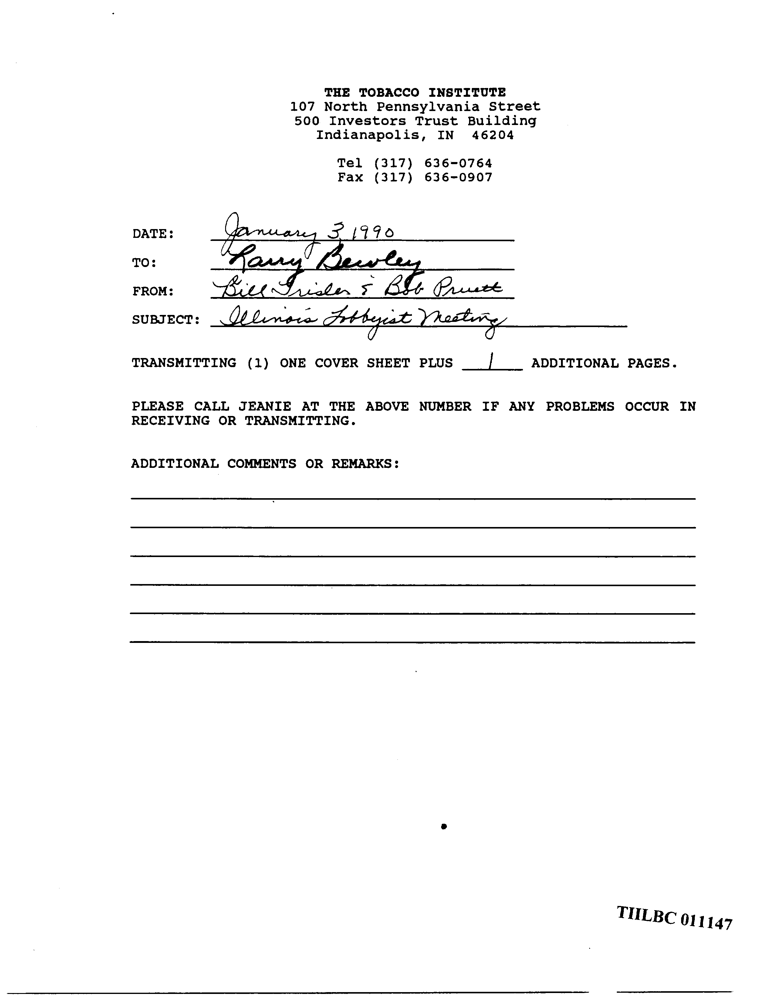 THE TOBACCO INSTITUTE
107 North Pennsylvania Street
500 Investors Trust Building
Indianapolis, IN 46204
Tel (317) 636-0764
Fax (317) 636-0907
DATE: January 3, 1990
TO: Larry Bewley
FROM: Bill Trisler & Bob Pruett
SUBJECT: Illinois Lobbyist Meeting
TRANSMITTING (1) ONE COVER SHEET PLUS 1 ADDITIONAL PAGES.
PLEASE CALL JEANIE AT THE ABOVE NUMBER IF ANY PROBLEMS OCCUR IN
RECEIVING OR TRANSMITTING.
ADDITIONAL COMMENTS OR REMARKS:
TIILBC 011147